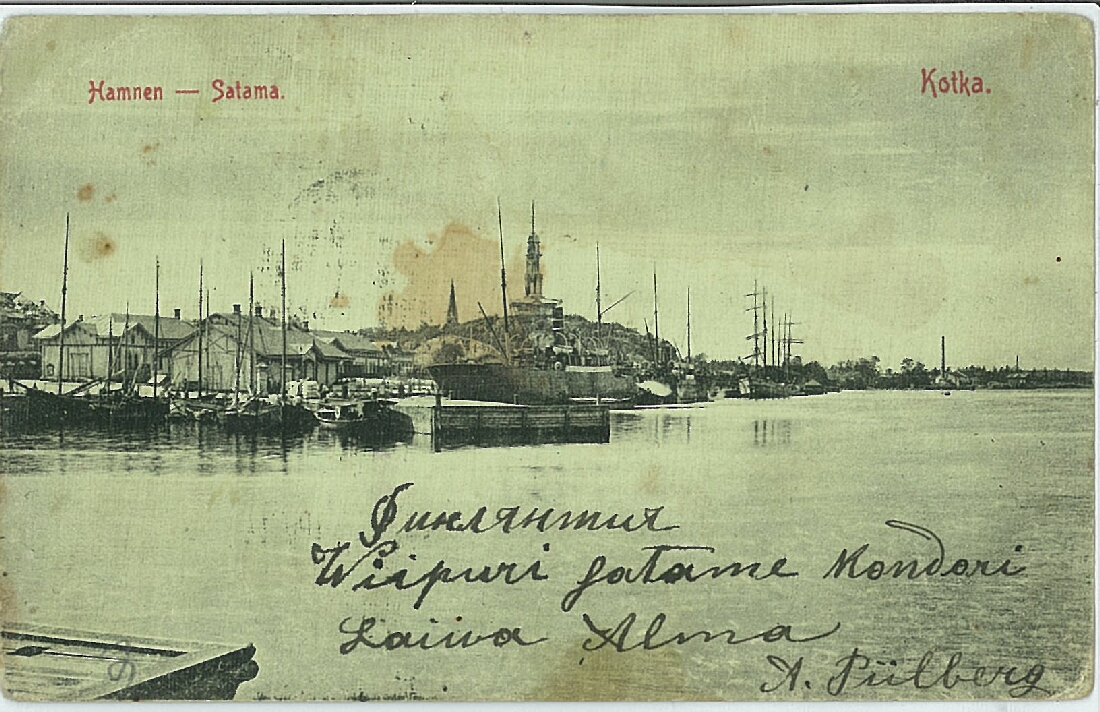 Hamnen — Satama.
Kotka.
Финлянтия
Wiipuri satame Kondori
Laiwa Alma
A. Piilberg